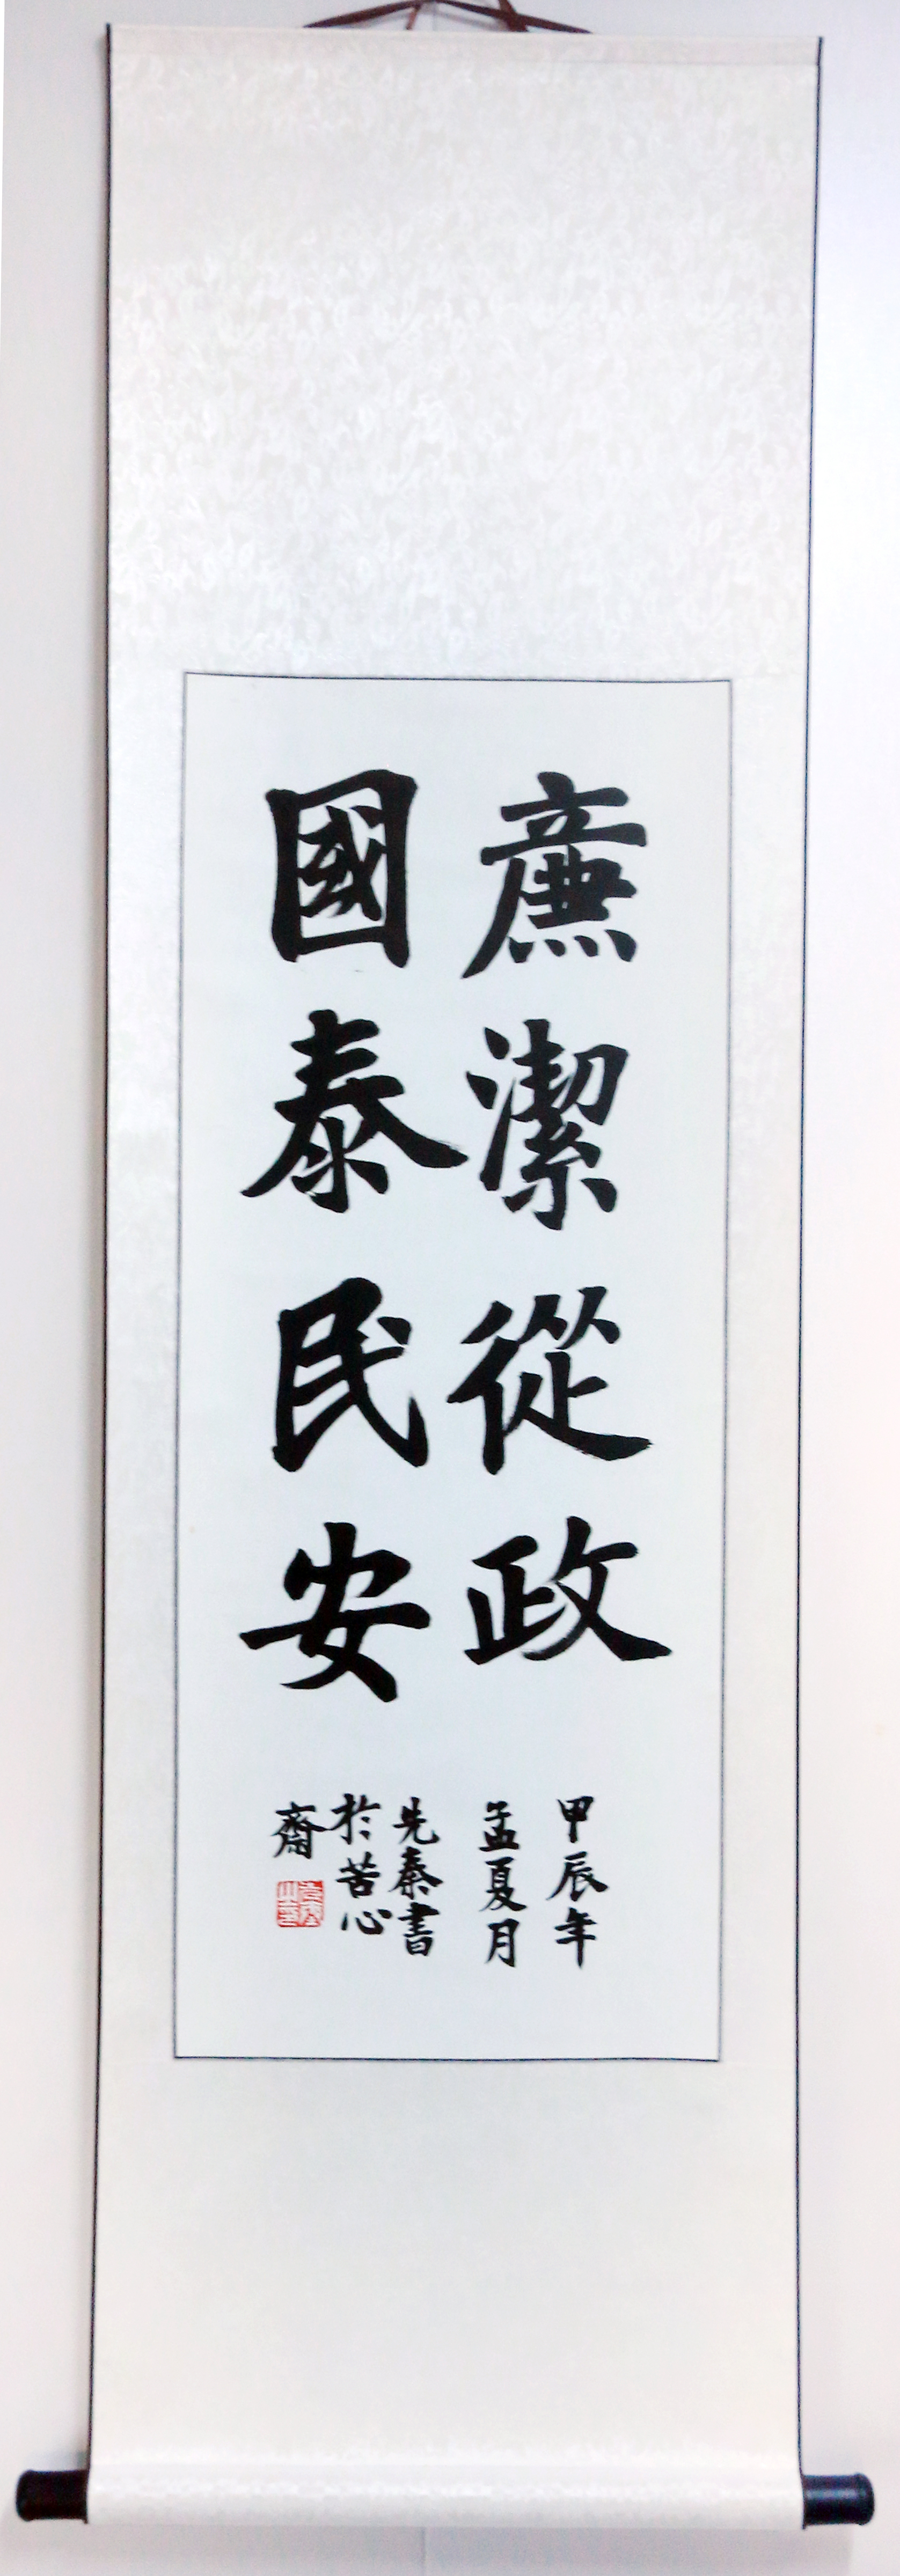 廉潔從政
國泰民安
甲辰年
孟夏月
先秦書
於苦心
齋